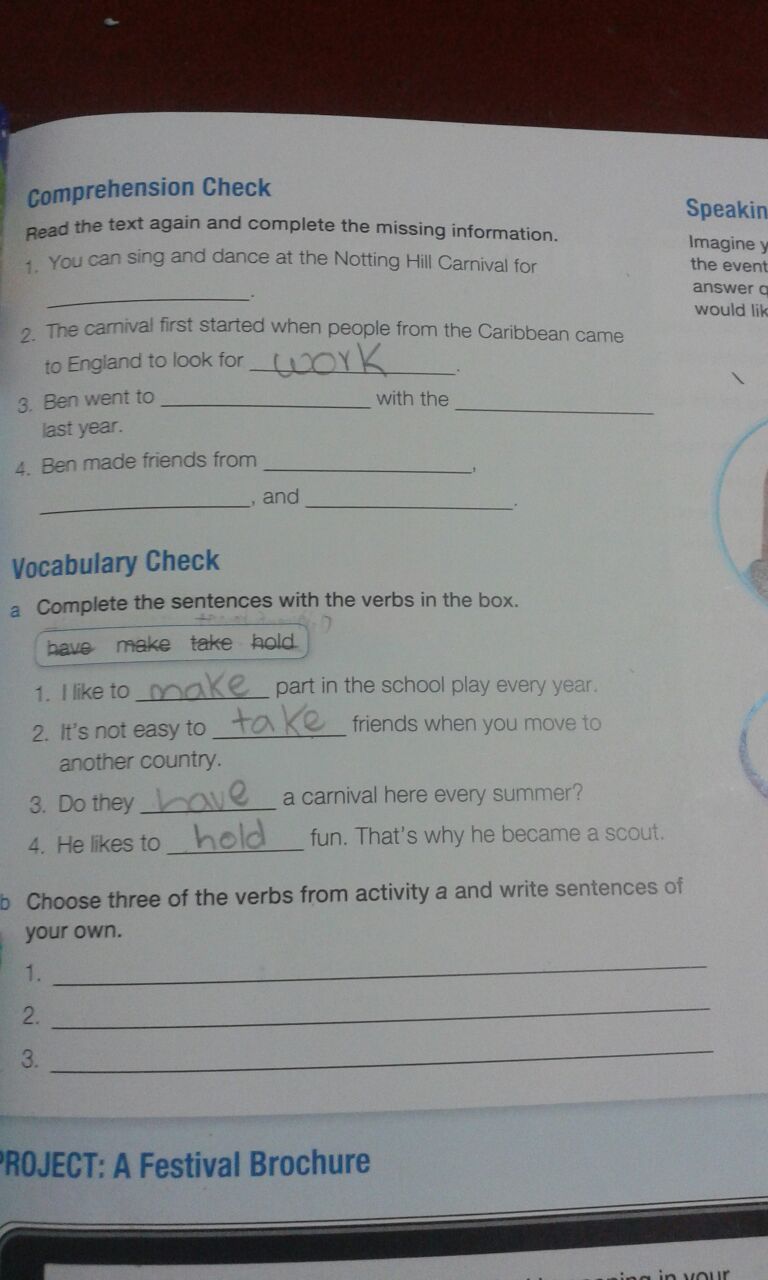 Comprehension Check
Read the text again and complete the missing information.
1. You can sing and dance at the Notting Hill Carnival for
____________.
2. The carnival first started when people from the Caribbean came
to England to look for work.
3. Ben went to ____________ with the ____________
last year.
4. Ben made friends from ____________,
____________, and ____________.
Vocabulary Check
a Complete the sentences with the verbs in the box.
have make take hold
1. I like to make part in the school play every year.
2. It's not easy to take friends when you move to
another country.
3. Do they have a carnival here every summer?
4. He likes to hold fun. That's why he became a scout.
b Choose three of the verbs from activity a and write sentences of
your own.
1. ____________
2. ____________
3. ____________
PROJECT: A Festival Brochure
in your
Speakin
Imagine y
the event
answer q
would lik